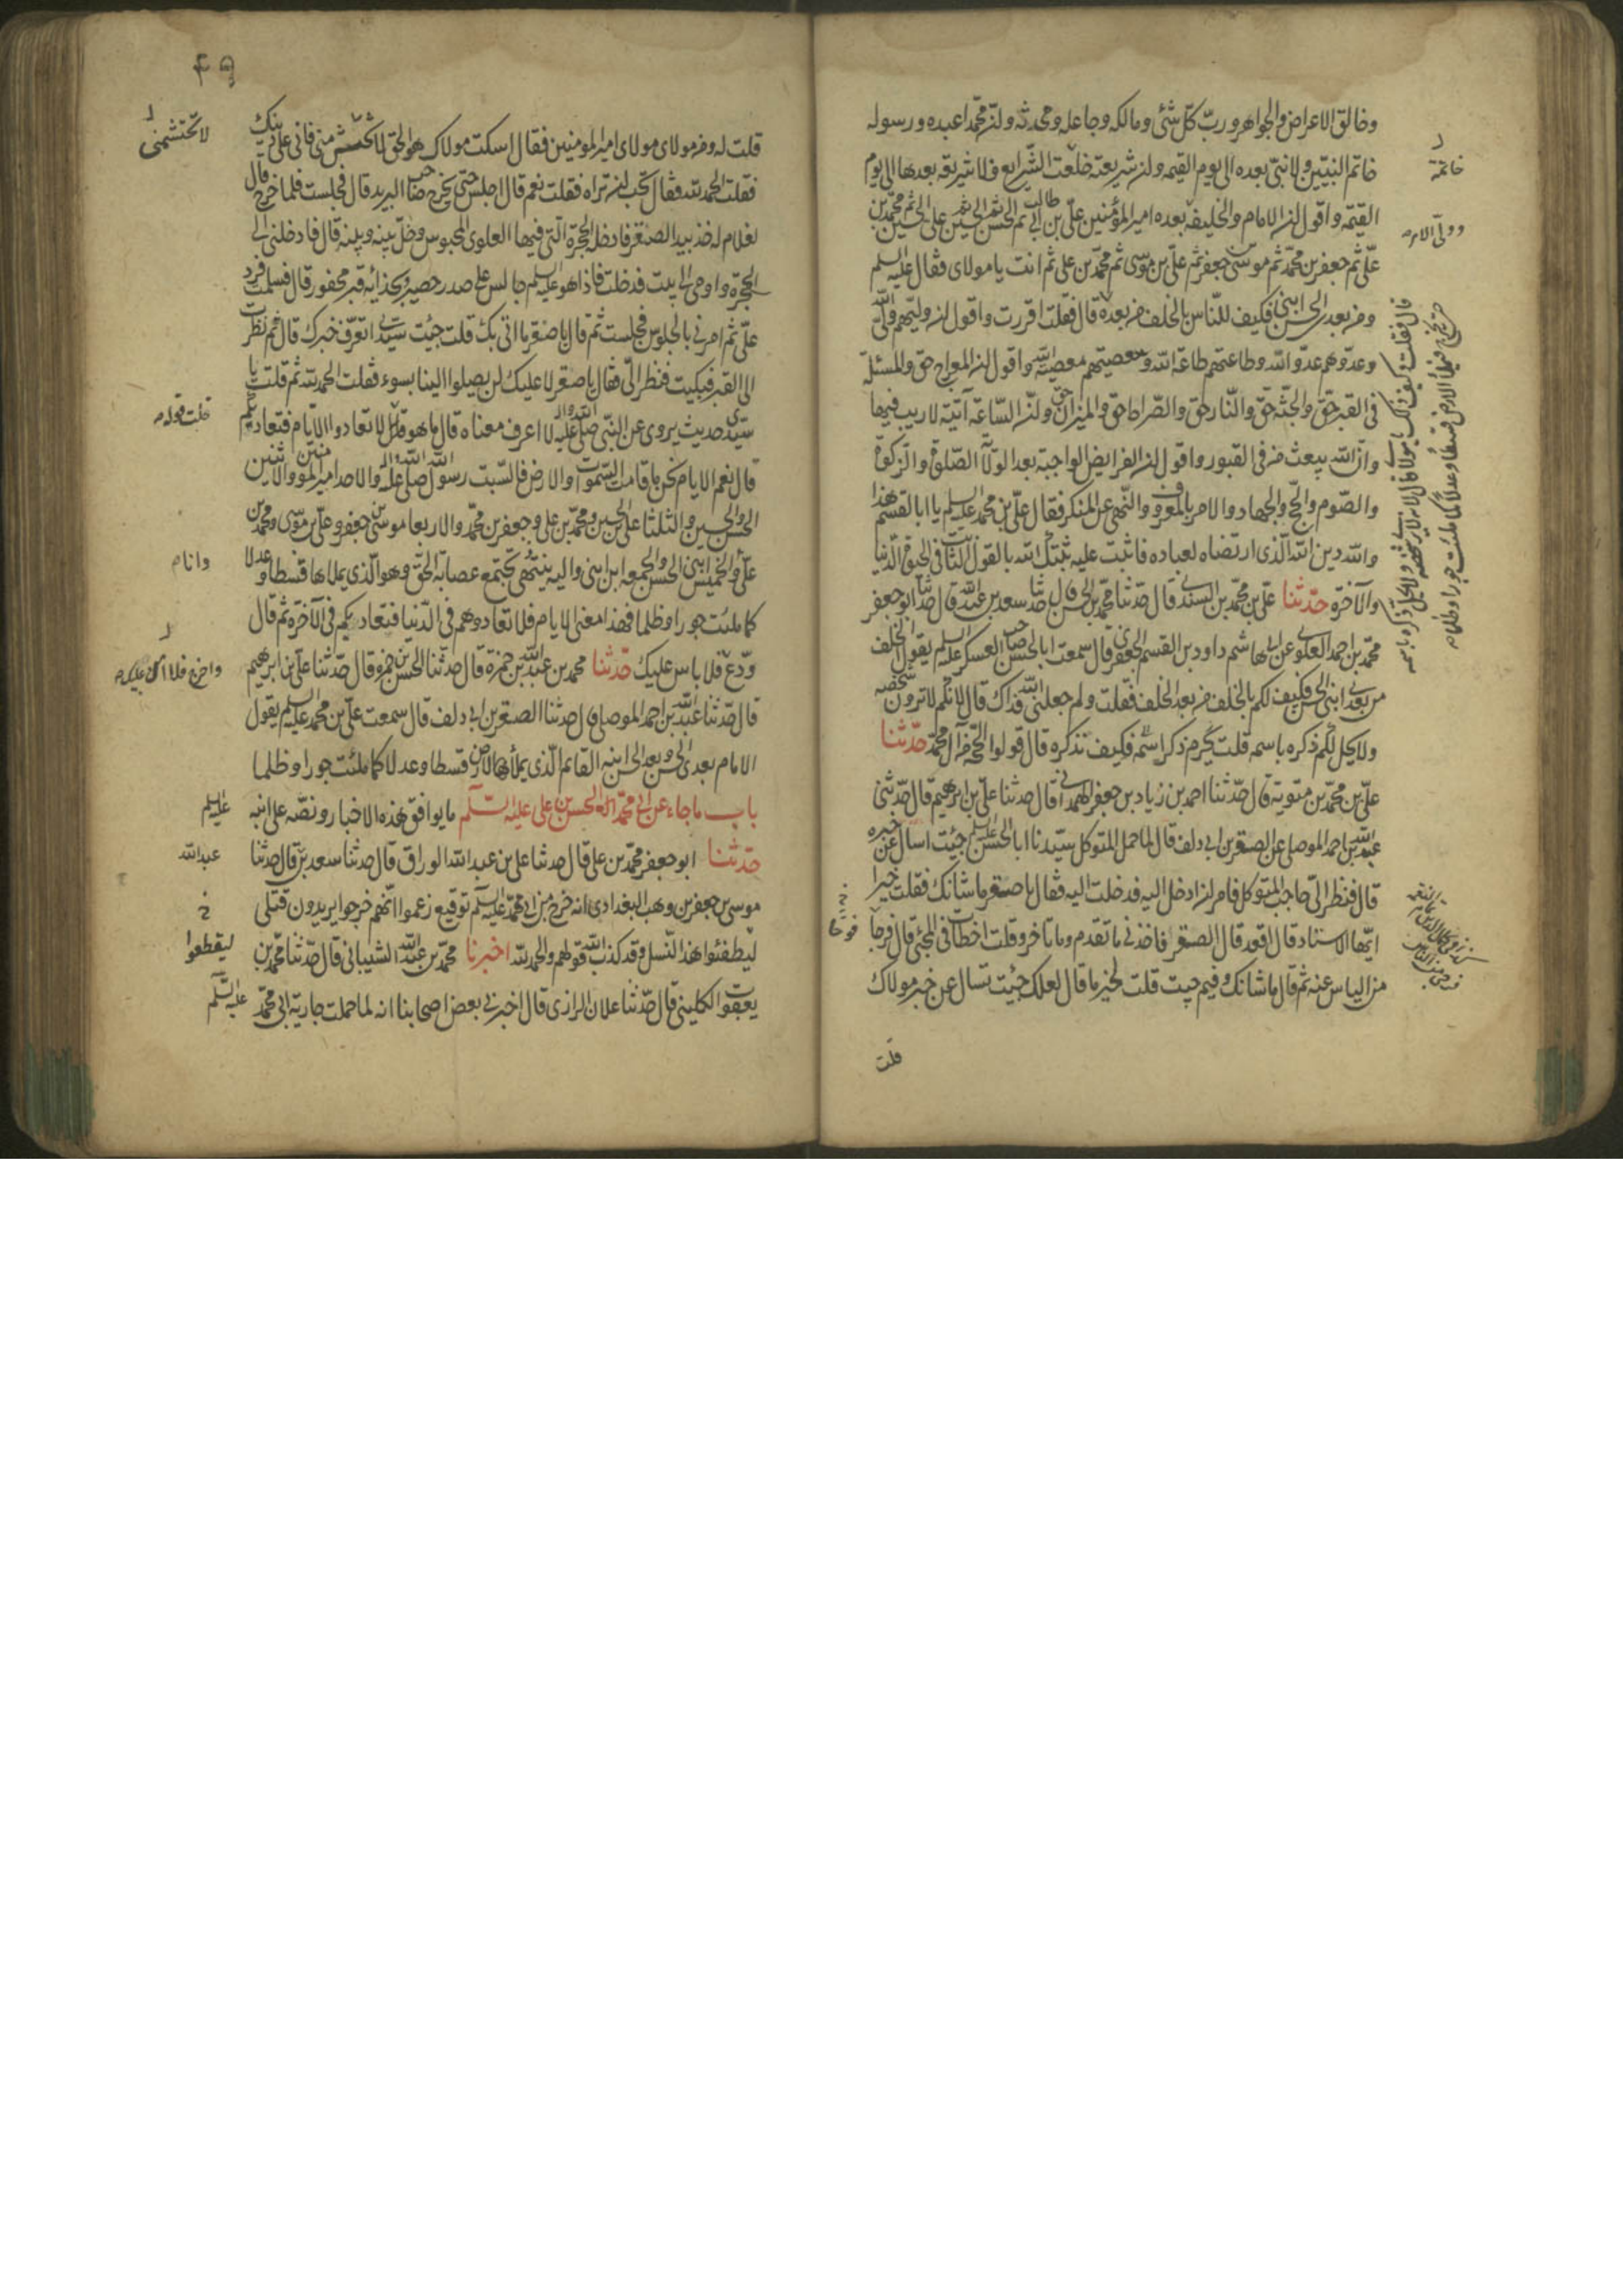 وخالق الاعراض والجواهر ورب كل شئ ومالكه وجاعله ومحدثه وان محمدا عبده ورسوله
خاتم النبيين ولا نبي بعده الى يوم القيمه وان شريعته خاتمة الشرايع فلا شريعة بعدها الى يوم
القيمه واقول ان الامام والخليفه بعده امير المؤمنين علي بن ابي طالب ثم الحسن ثم الحسين ثم علي بن الحسين ثم محمد بن
علي ثم جعفر بن محمد ثم موسى بن جعفر ثم علي بن موسى ثم محمد بن علي ثم انت يا مولاي فقال عليه السلم
ومن بعدى الحسن ابني فكيف للناس بالخلف من بعده قال فقلت اقررت واقول ان وليهم ولي الله
وعدوهم عدو الله وطاعتهم طاعة الله ومعصيتهم معصية الله واقول ان المعراج حق والمسئلة
في القبر حق والجنة حق والنار حق والصراط حق والميزان حق وان الساعة آتية لا ريب فيها
وان الله يبعث من في القبور واقول ان الفرايض الواجبة بعد الولاية الصلوة والزكوة
والصوم والحج والجهاد والامر بالمعروف والنهي عن المنكر فقال علي بن محمد عليه السلم يا ابا القسم هذا
والله دين الله الذى ارتضاه لعباده فاثبت عليه ثبتك الله بالقول الثابت في الحيوة الدنيا
والآخرة حدثنا علي بن محمد بن السندي قال حدثنا محمد بن الحسن قال حدثنا سعد بن عبد الله قال حدثنا ابو جعفر
محمد بن احمد العلوي عن ابي هاشم داود بن القسم الجعفري قال سمعت ابا الحسن صاحب العسكر عليه السلم يقول الخلف
من بعدي ابني الحسن فكيف لكم بالخلف من بعد الخلف فقلت ولم جعلني الله فداك قال لانكم لا ترون شخصه
ولا يحل لكم ذكره باسمه قلت فكيف نذكره قال قولوا الحجة من آل محمد حدثنا
علي بن محمد بن متوية قال حدثنا احمد بن زياد بن جعفر الهمداني قال حدثنا علي بن ابرهيم قال حدثني
عبد الله بن احمد الموصلي عن الصقر بن ابي دلف قال لما حمل المتوكل سيدنا ابا الحسن عليه السلم جئت اسال عن خبره
قال فنظر الي حاجب المتوكل فامر ان ادخل اليه فدخلت اليه فقال يا صقر ما شانك فقلت خيرا
ايها الاستاد قال اقعد قال الصقر فاخذني ما تقدم وما تاخر وقلت اخطات في المجئ قال فرجا
من الياس عنه ثم قال ما شانك وفيم جيت قلت لخير ما قال لعلك جئت تسال عن خبر مولاك
قلت
خاتمة
قال فقلت وكيف ذاك يا مولاي قال لانه لا يرى شخصه ولا يحل ذكره باسمه
حتى يخرج فيملأ الارض قسطا وعدلا كما ملئت جورا وظلما
قلت له ومن مولاي مولاي امير المومنين فقال اسكت مولاك هو الحق لا تحتشم مني فاني على دينك
فقلت الحمد لله فقال تحب ان تراه فقلت نعم قال اجلس حتى يخرج صاحب البريد قال فجلست فلما خرج قال
لغلام له خذ بيد الصقر فادخله الحجرة التي فيها العلوى المحبوس وخل بينه وبينه قال فادخلني الى
الحجرة واومى الى بيت فدخلت فاذا هو عليه السلم جالس على صدر حصير وبحذائه قبر محفور قال فسلمت فرد
علي ثم امرني بالجلوس فجلست ثم قال يا صقر ما اتى بك قلت جئت سيدي اتعرف خبرك قال ثم نظرت
الى القبر فبكيت فنظر الي فقال يا صقر لا عليك لن يصلوا الينا بسوء فقلت الحمد لله ثم قلت يا
سيدى حديث يروى عن النبي صلى الله عليه واله لا اعرف معناه قال ما هو قال لا تعادوا الايام فتعاديكم
قال نعم الايام نحن ما قامت السموات والارض فالسبت رسول الله صلى الله عليه واله والاحد امير المومنين والاثنين
الحسن والحسين والثلثا علي بن الحسين ومحمد بن علي وجعفر بن محمد والاربعا موسى بن جعفر وعلي بن موسى ومحمد بن
علي والخميس ابني الحسن والجمعه ابن ابني واليه ينتهى تجتمع عصابة الحق وهو الذى يملاها قسطا وعدلا
كما ملئت جورا وظلما فهذا معنى الايام فلا تعادوهم في الدنيا فتعاديكم في الآخرة ثم قال
ودع فلا باس عليك حدثنا محمد بن عبد الله بن حمزة قال حدثنا الحسن بن حمزه قال حدثنا علي بن ابرهيم
قال حدثنا عبد الله بن احمد الموصلي قال حدثنا الصقر بن ابي دلف قال سمعت علي بن محمد عليه السلم يقول
الامام بعدى الحسن وبعد الحسن ابنه القايم الذى يملأ الارض قسطا وعدلا كما ملئت جورا وظلما
باب ما جاء عن ابي محمد الحسن بن علي عليه السلم ما يوافق هذه الاخبار ونصه على ابنه
حدثنا ابو جعفر محمد بن علي قال حدثنا علي بن عبد الله الوراق قال حدثنا سعد بن قال حدثنا
موسى بن جعفر بن وهب البغدادى انه خرج من ابي محمد عليه السلم توقيع زعموا انهم خرجوا يريدون قتلى
ليطفئوا هذا النسل وقد كذب الله قولهم والحمد لله اخبرنا محمد بن عبد الله الشيباني قال حدثنا محمد بن
يعقوب الكليني قال حدثنا علان الرازى قال اخبرني بعض اصحابنا انه لما حملت جارية ابي محمد عليه السلم
لا تحتشمني
قلت قوله
عليه السلم
عبد الله
ليقطعوا